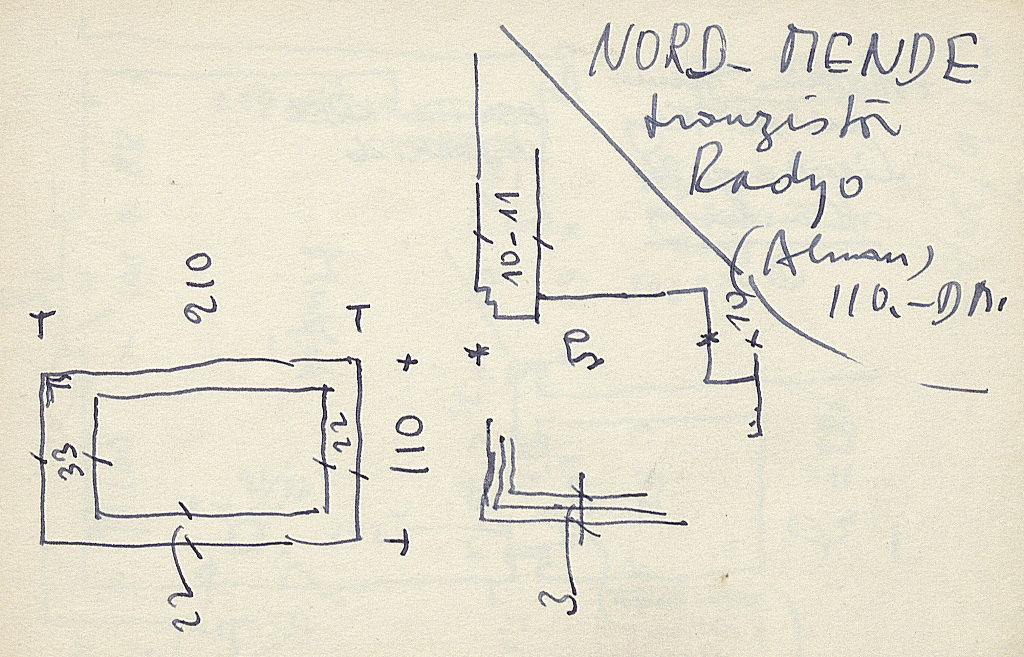 NORD-MENDE
tranzistör
Radyo
(Alman)
110.-DM.
10-11
10
210
110
33
22
22
3